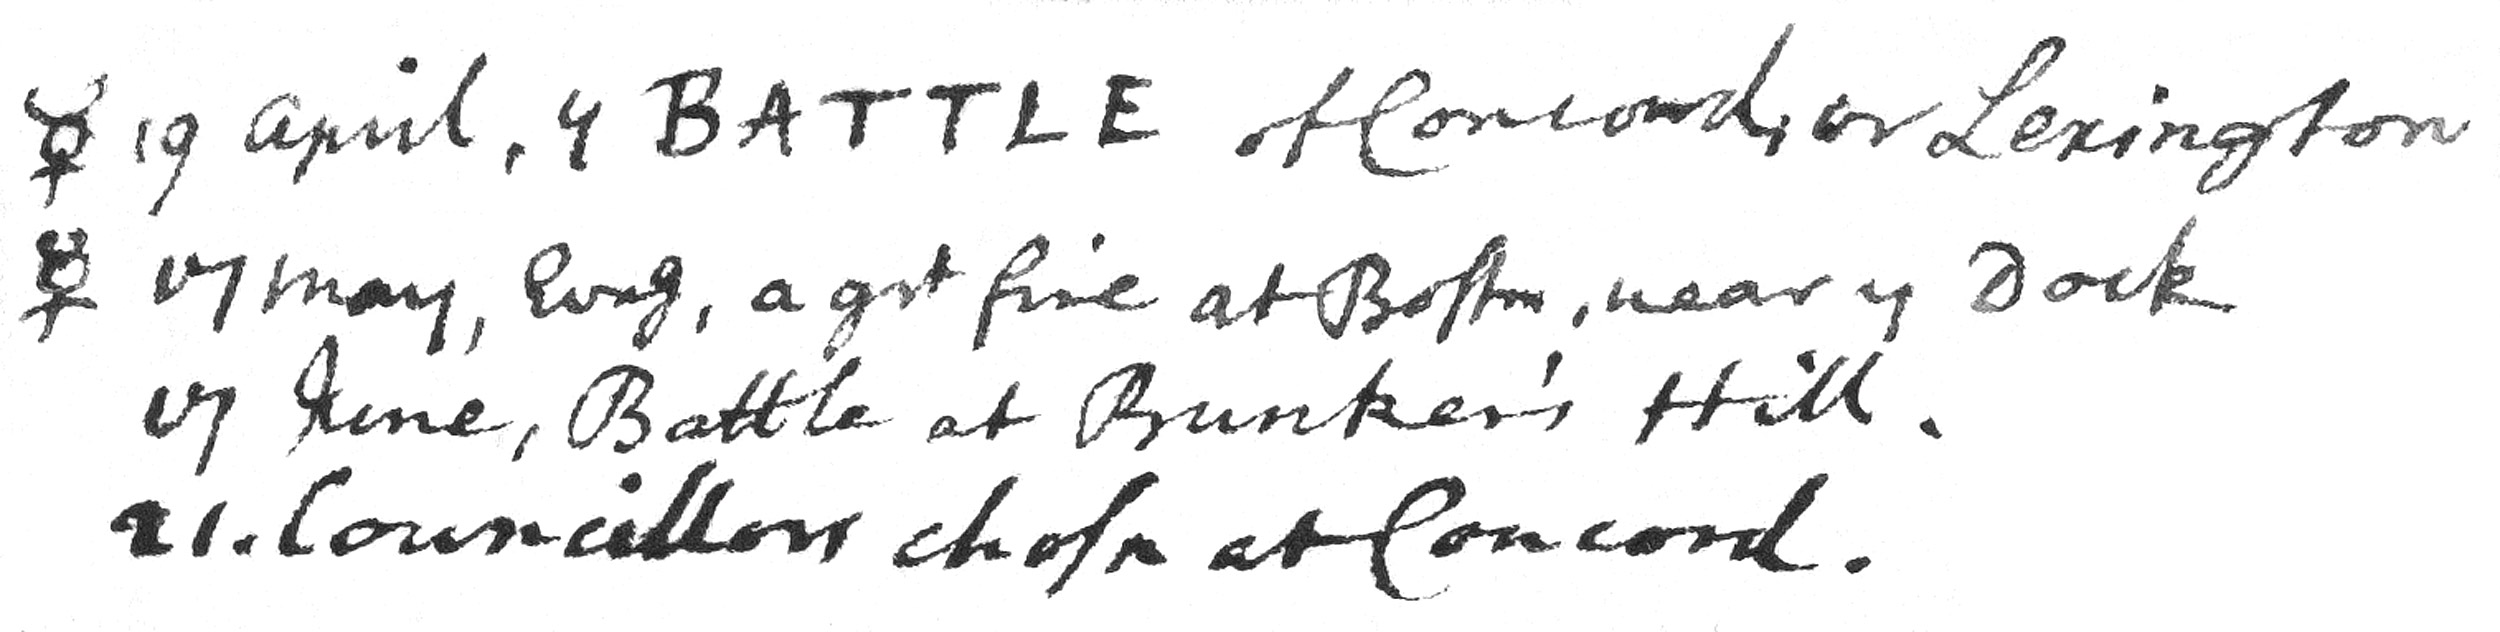 ☿ 19 April, y BATTLE of Concord, or Lexington
☿ 17 May, Evng, a grt fire at Boſton, near y Dock
17 June, Battle at Bunker's Hill.
21. Councillors choſn at Concord.